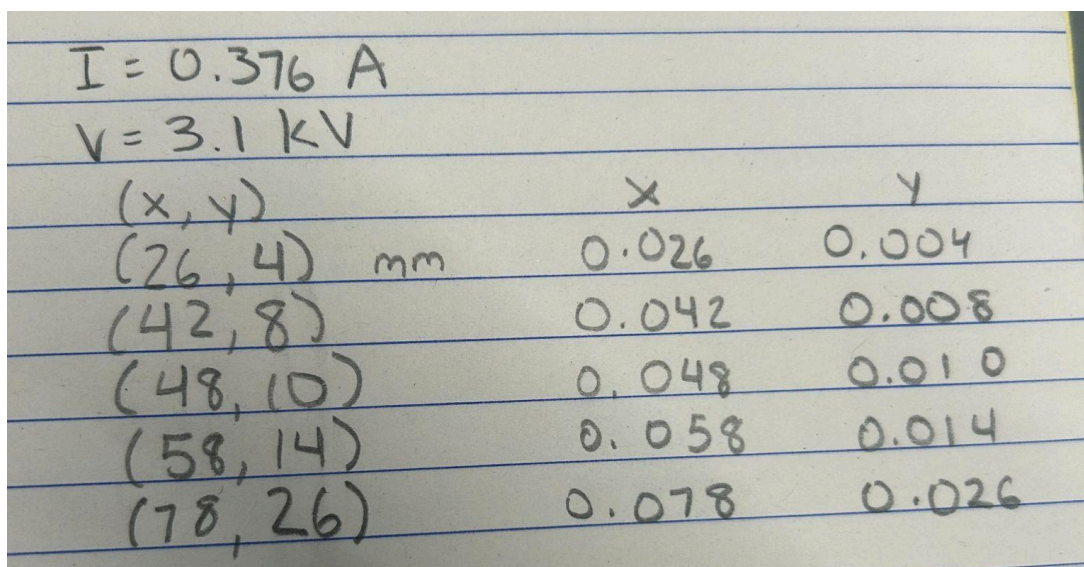 I = 0.376 A
V = 3.1 kV
(x, y) x y
(26, 4) mm 0.026 0.004
(42, 8) 0.042 0.008
(48, 10) 0.048 0.010
(58, 14) 0.058 0.014
(78, 26) 0.078 0.026